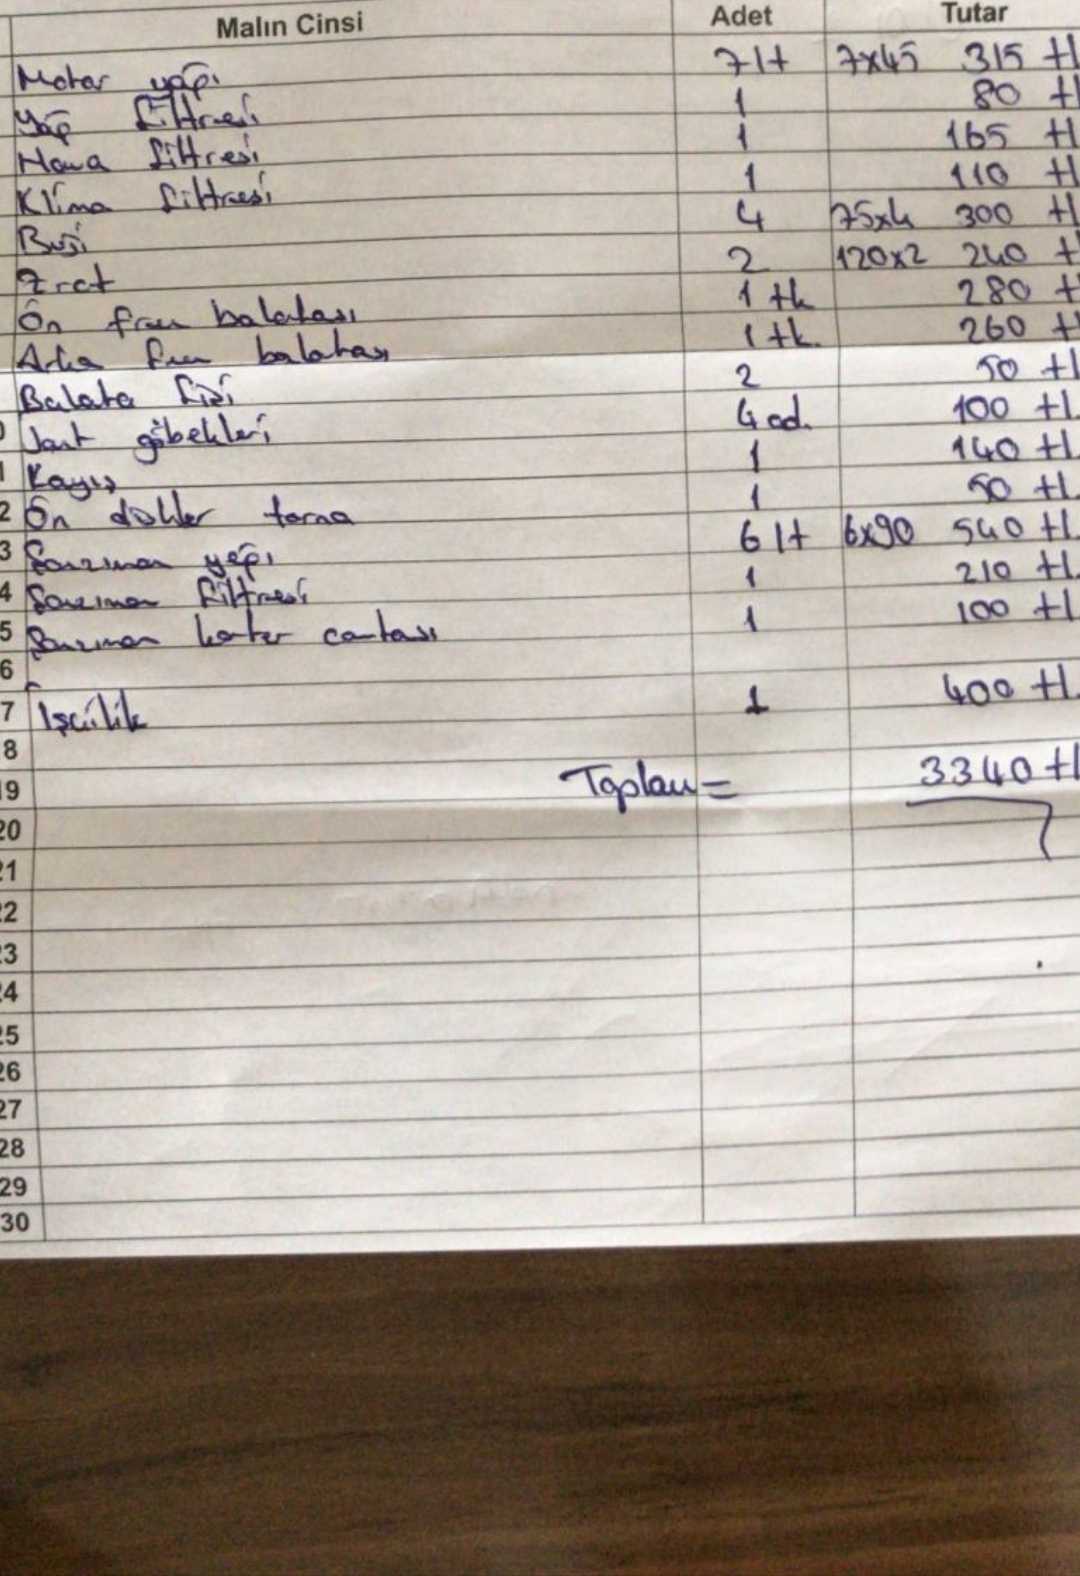 Malın Cinsi Adet Tutar
Motor yağı 7 lt 7x45 315 tl
Yağ filtresi 1 80 tl
Hava filtresi 1 165 tl
Klima filtresi 1 110 tl
Buji 4 75x4 300 tl
2 120x2 240 tl
Ön fren balatası 1 tk 280 tl
Arka fren balatası 1 tk. 260 tl
Balata fişi 2 50 tl
0 Jant göbekleri 4 ad. 100 tl.
1 Kayış 1 140 tl.
2 Ön diskler torna 1 50 tl.
3 Şanzıman yağı 6 lt 6x90 540 tl.
4 Şanzıman filtresi 1 210 tl.
5 Şanzıman karter contası 1 100 tl.
6
7 İşçilik 1 400 tl.
8
19 Toplam = 3340 tl
20
21
22
23
24
25
26
27
28
29
30